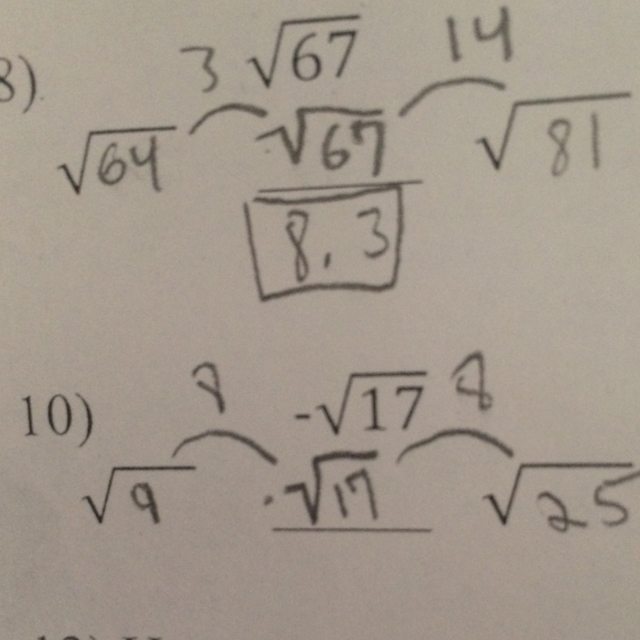 8) 3 √67 14
√64 √67 √81
8.3
10) 8 -√17 8
√9 -√17 √25